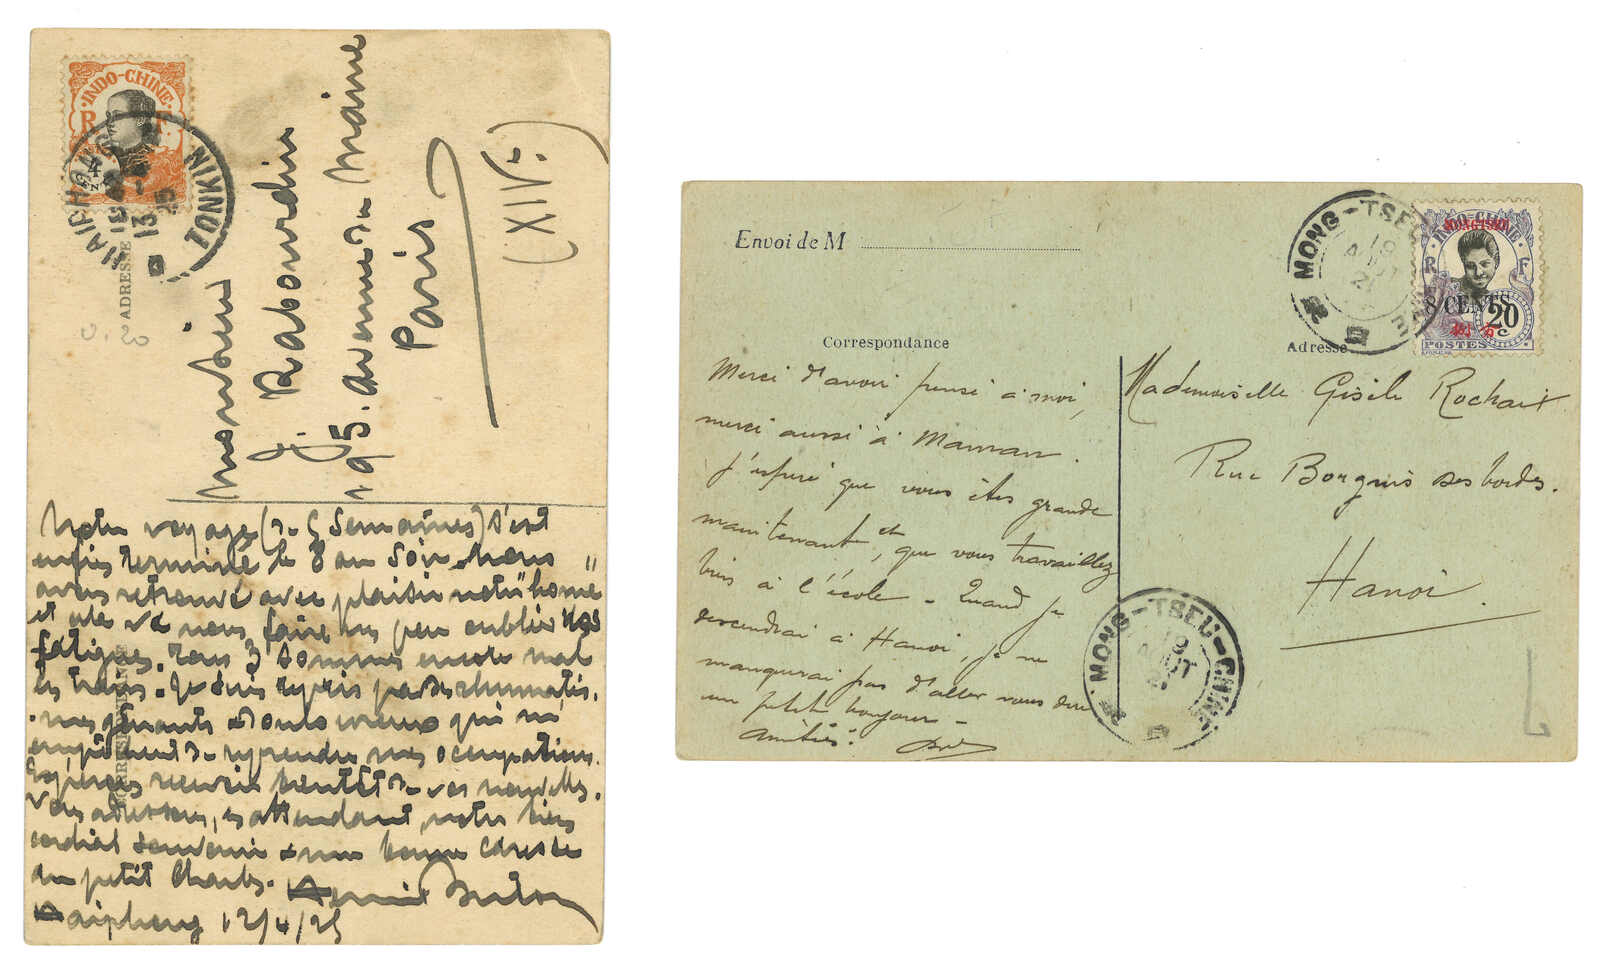 INDO-CHINE
R F
HAIPHONG
TONKIN
13
25
ADRESSE
0.20
Monsieur
J. Rabourdin
195. avenue du Maine
Paris
(XIVe)
CORRESPONDANCE
Notre voyage (de 5 semaines) s'est
enfin terminé le 8 au soir. Nous
avons retrouvé avec plaisir notre "home"
et cela va nous faire un peu oublier nos
fatigues. Tous 3 sommes encore mal
en train. Je suis repris par des rhumatis-
mes gênants et douloureux qui m'
empêchent de reprendre mes occupations.
Espérons recevoir bientôt de vos nouvelles.
Vous adressons, en attendant, notre bien
cordial souvenir et une bonne caresse
du petit Charles.
Haiphong 12/4/25
Envoi de M
Correspondance
Adresse
MONG-TSEU
19
AOUT
21
INDO-CHINE
MONGTSEU
R F
8 CENTS
20 c
POSTES
Merci d'avoir pensé à moi,
merci aussi à Maman.
J'espère que vous êtes grande
maintenant et, que vous travaillez
bien à l'école - Quand je
descendrai à Hanoï, je ne
manquerai pas d'aller vous dire
un petit bonjour -
Amitiés.
Mademoiselle Gisèle Rochaix
Rue Borgnis desbordes.
Hanoï.
MONG-TSEU-CHINE
19
AOUT
21